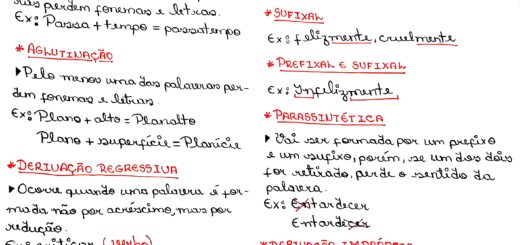 perdem fonemas e letras.
Ex: Passa + tempo = passatempo
* AGLUTINAÇÃO
▸ Pelo menos uma das palavras per-
dem fonemas e letras.
Ex: Plano + alto = Planalto
Plano + superfície = Planície
* DERIVAÇÃO REGRESSIVA
▸ Ocorre quando uma palavra é for-
mada não por acréscimo, mas por
redução.
* SUFIXAL
Ex: felizmente, cruelmente
* PREFIXAL E SUFIXAL
Ex: Infelizmente
* PARASSINTÉTICA
▸ Vai ser formada por um prefixo
e um sufixo, porém, se um dos dois
for retirado, perde o sentido da
palavra.
Ex: Entardecer
Entardecer
* DERIVAÇÃO IMPRÓPRIA